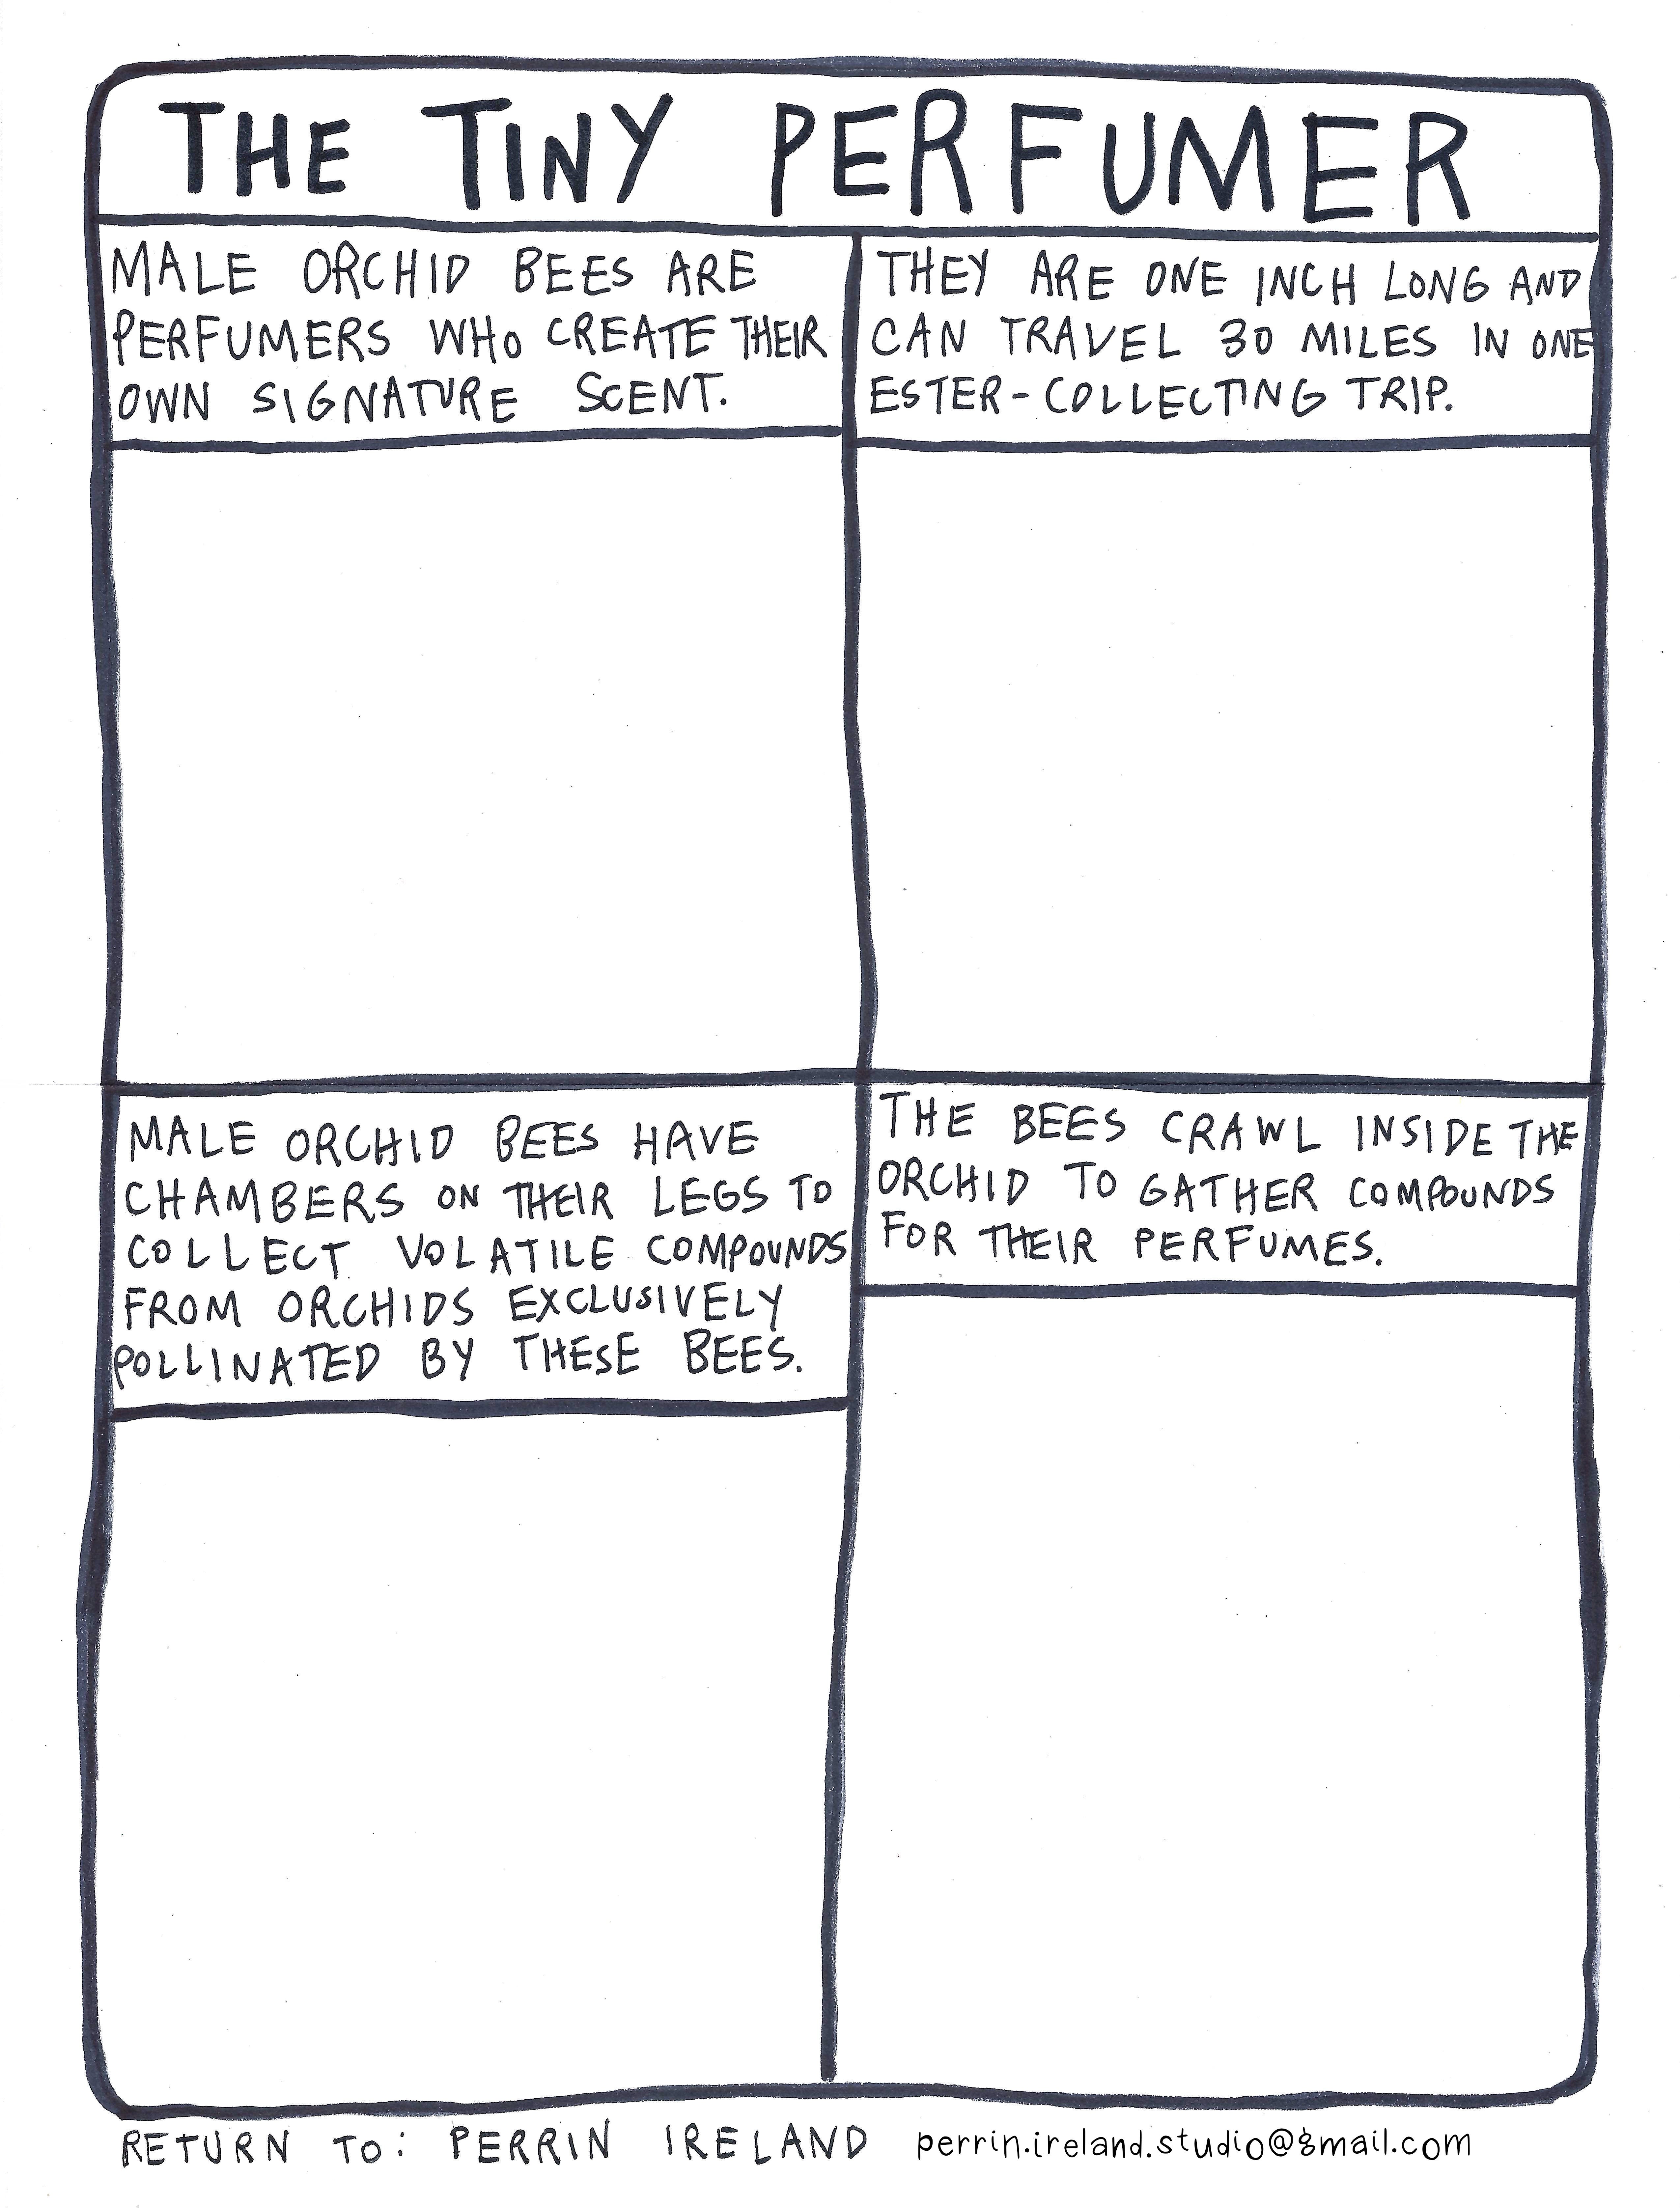 THE TINY PERFUMER
MALE ORCHID BEES ARE
PERFUMERS WHO CREATE THEIR
OWN SIGNATURE SCENT.
THEY ARE ONE INCH LONG AND
CAN TRAVEL 30 MILES IN ONE
ESTER-COLLECTING TRIP.
MALE ORCHID BEES HAVE
CHAMBERS ON THEIR LEGS TO
COLLECT VOLATILE COMPOUNDS
FROM ORCHIDS EXCLUSIVELY
POLLINATED BY THESE BEES.
THE BEES CRAWL INSIDE THE
ORCHID TO GATHER COMPOUNDS
FOR THEIR PERFUMES.
RETURN TO: PERRIN IRELAND perrin.ireland.studio@gmail.com